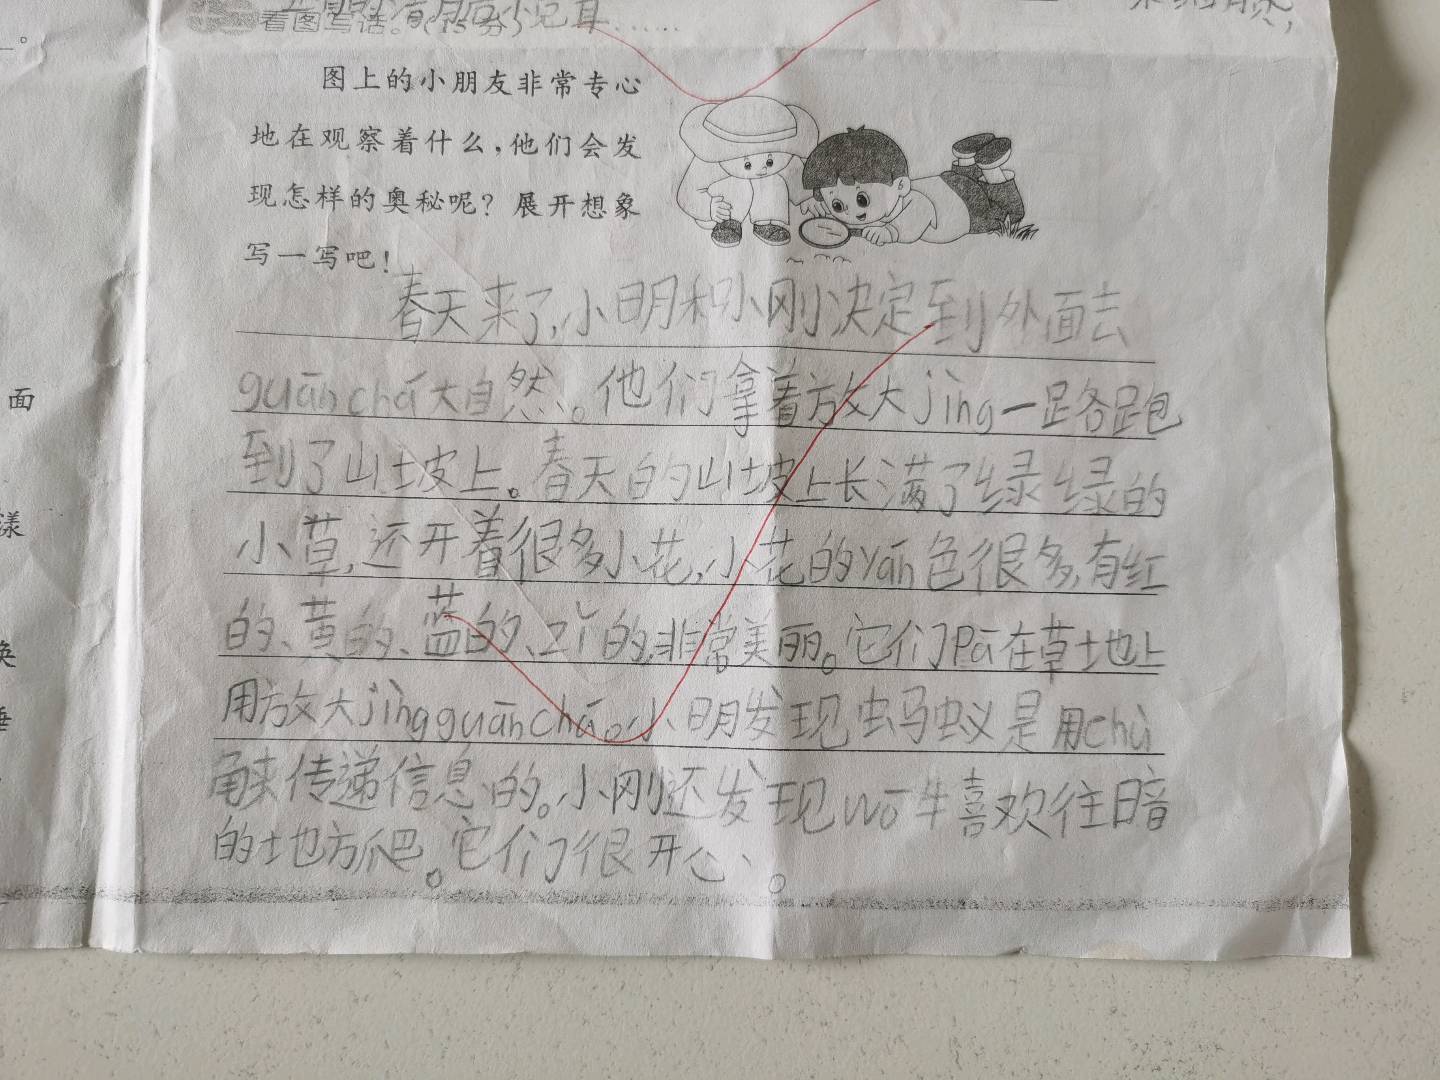 看图写话。(15分)
图上的小朋友非常专心
地在观察着什么,他们会发
现怎样的奥秘呢?展开想象
写一写吧!
春天来了,小明和小刚决定到外面去
guān chá大自然。他们拿着放大jìng一路跑
到了山坡上。春天的山坡上长满了绿绿的
小草,还开着很多小花,小花的yán色很多,有红
的、黄的、蓝的、zǐ的,非常美丽。它们Pā在草土地上
用放大jìng guān chá。小明发现蚂蚁是用chù
触传递信息的。小刚还发现wō牛喜欢往暗
的地方爬。它们很开心。
面
漾